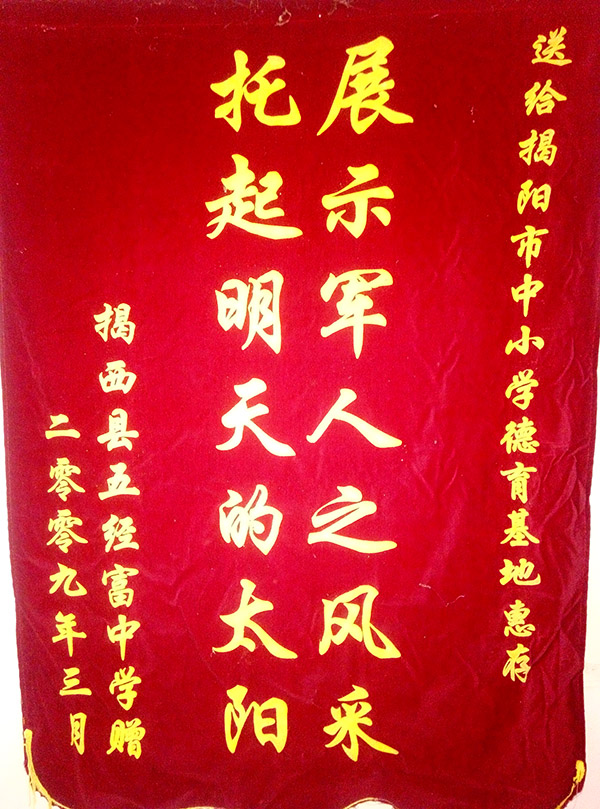 送给揭阳市中小学德育基地惠存
展示军人之风采
托起明天的太阳
揭西县五经富中学赠
二零零九年三月